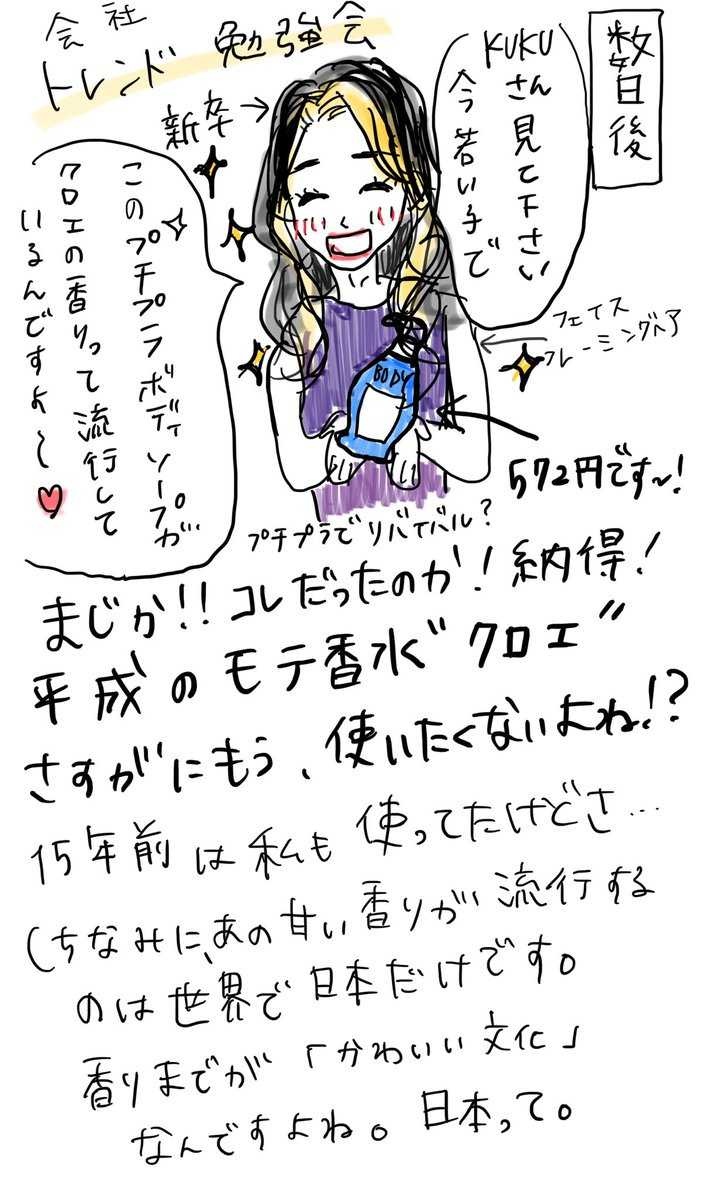 数日後
会社
トレンド 勉強会
新卒→
KUKU
さん見て下さい
今若い子で
このプチプラボディソープが
クロエの香りって流行して
いるんですよ～♥
フェイス
フレーミングヘア
BODY
572円です～!
プチプラでリバイバル?
まじか!!コレだったのか!納得!
平成のモテ香水"クロエ"
さすがにもう、使いたくないよね!?
15年前は私も使ってたけどさ…
(ちなみに、あの甘い香りが流行する
のは世界で日本だけです。
香りまでが「かわいい文化」
なんですよね。日本って。